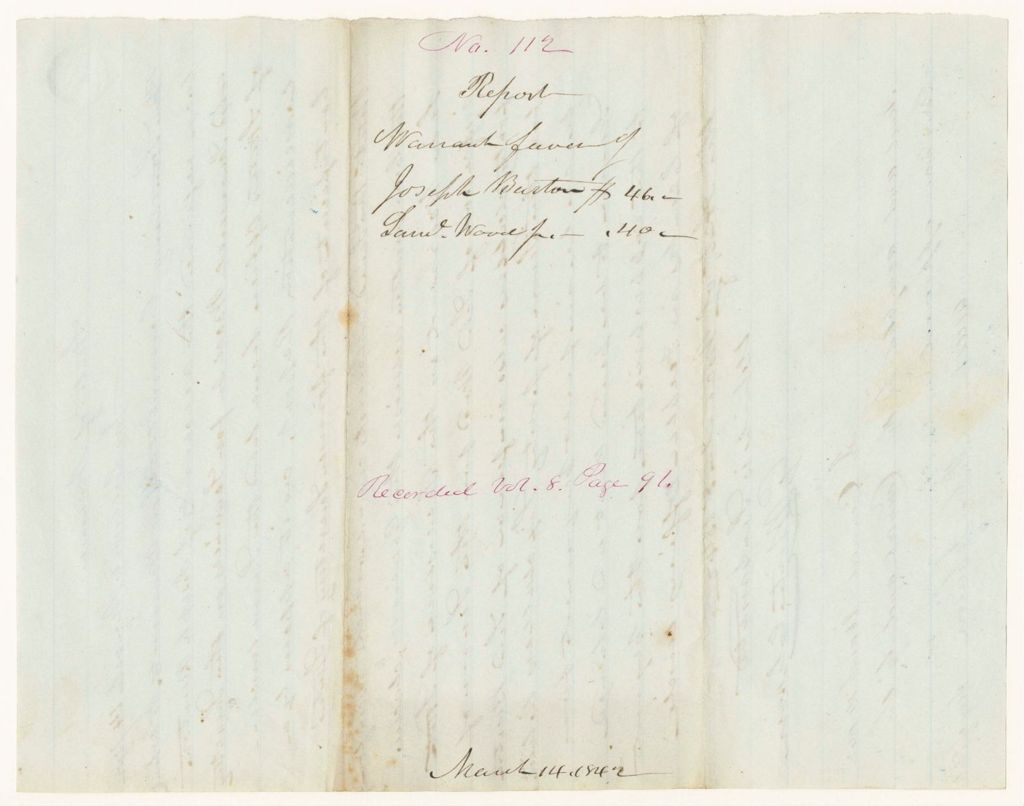 No. 112
Report
Warrant favor of
Joseph Burton $46.—
Saml. Wood jr.— .40—
Recorded Vol. 8. Page 91.
March 14. 1842